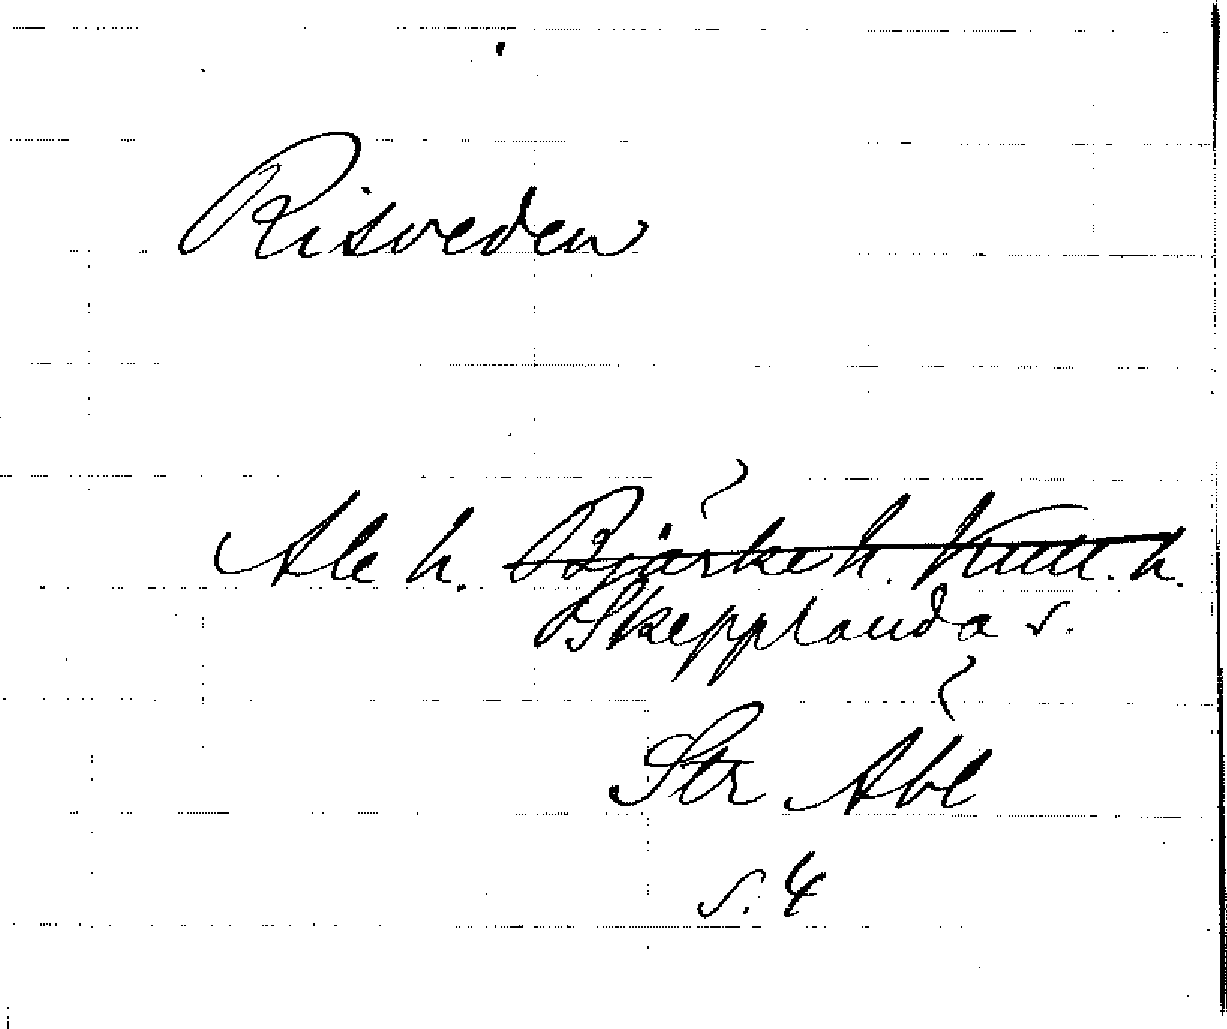 Risveden
Ale h. Bjärke h. Kull. h.
Skepplanda s.
Str Abl
s. 4